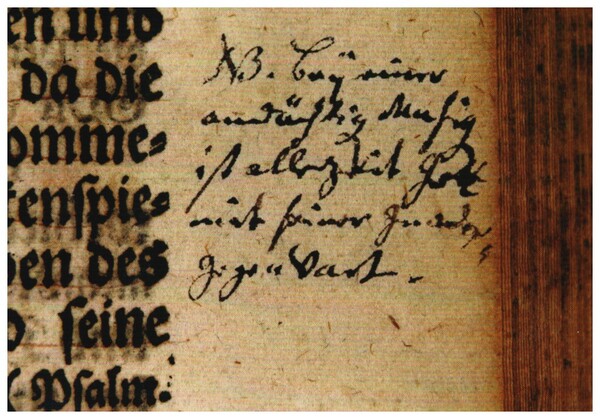 en und
da die
omme⸗
tenſpie⸗
en des
ſeine
Pſalm.
NB. Beÿ einer
andächtig Musig
ist allezeit Gott
mit seiner Gnaden
Gegenwart.